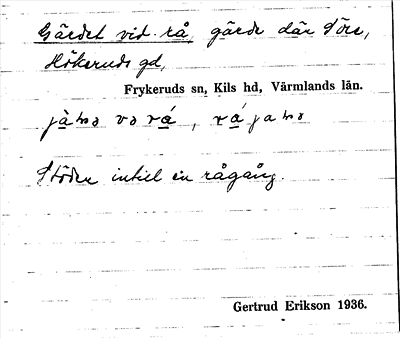 Gärdet vid rå, gärde där Töre,
Hökeruds gd,
Frykeruds sn, Kils hd, Värmlands län.
Stöder intill en rågång.
Gertrud Erikson 1936.